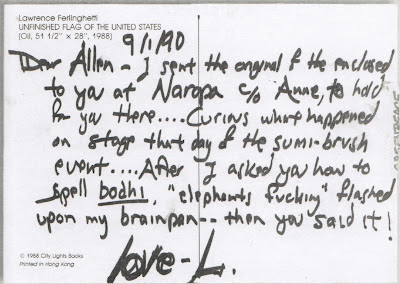 Lawrence Ferlinghetti
UNFINISHED FLAG OF THE UNITED STATES
(Oil, 51 1/2" x 28", 1988)
9/1/90
Dear Allen - I sent the original of the enclosed
to you at Naropa c/o Anne, to hold
for you there.... Curious what happened
on stage that day of the sumi-brush
event.... After I asked you how to
spell bodhi, "elephants fucking" flashed
upon my brainpan -- then you said it!
love - L.
© 1988 City Lights Books
Printed in Hong Kong